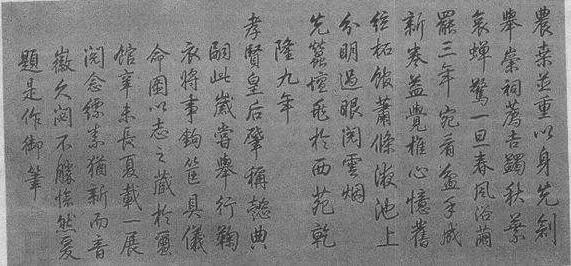 農桑並重以身先創
舉崇祠薦吉蠲秋葉
哀蟬驚一旦春風浴繭
罷三年宛看盆手成
新卷益覺椎心憶舊
絃柘館蕭條液池上
分明過眼閱雲烟
先蠶壇成於西苑乾
隆九年
孝賢皇后肇稱懿典
嗣此歲嘗舉行鞠
衣將事鉤筐具儀
命圖以志之藏於蠶
館辛未長夏載一展
閱念縹素猶新而音
徽久閟不勝悵然爰
題是作御筆